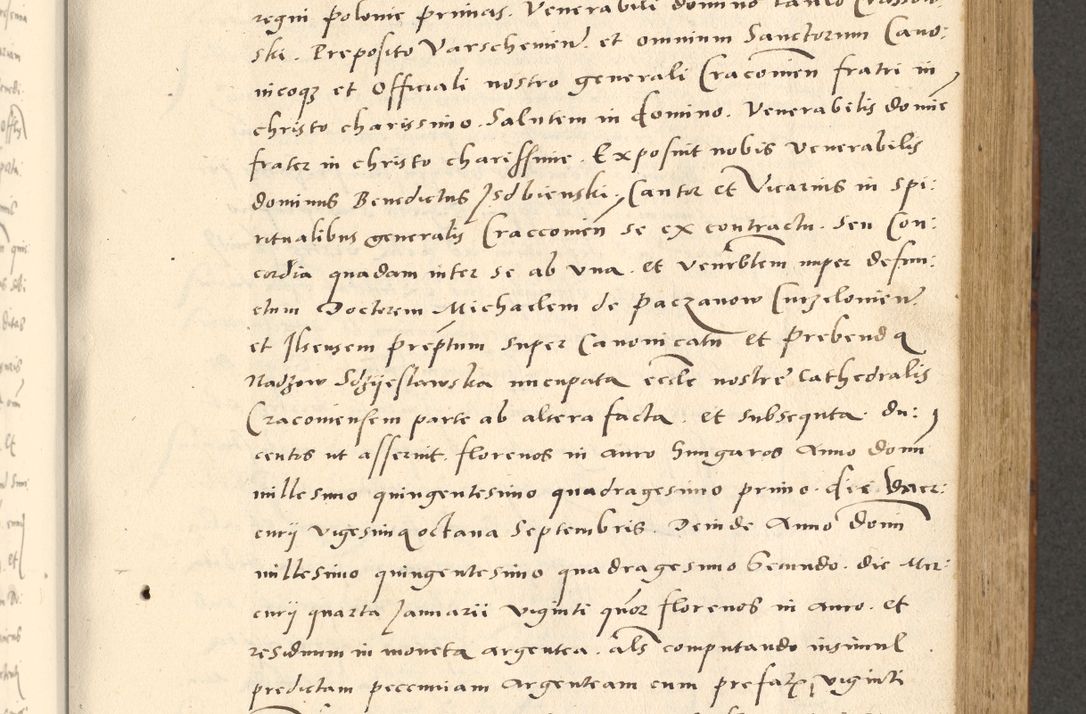 regni polonie primas. Venerabili domino
ski. Preposito Varschevien. et omnium Sanctorum Cano:
nicoqz et Officiali nostro generali Cracovien fratri in
christo charissimo. Salutem in domino. Venerabilis domine
frater in christo charissime. Exposuit nobis venerabilis
dominus Benedictus Isdbienski, Cantor et Vicarius in spi:
ritualibus generalis Craccovien se ex contractu. seu Con:
cordia quadam inter se ab una. et venerblem nuper defun:
ctum Doctorem Michaelem de paczanow Curzelovien.
et Ilsensem preptum super Canonicatu et prebenda
Nadzow Sdzijeslawska nuncupata eccle nostre cathedralis
Cracoviensem parte ab altera facta. et subsequta. du:
centos ut asseruit. florenos in auro hungaros Anno domi
millesimo quingentesimo quadragesimo primo. die Mer:
curij vigesima octava Septembris. Deinde Anno domi
millesimo quingentesimo quadragesimo secundo. die Mer:
curij quarta Januarii viginti quor florenos in auro. et
residuum in moneta argentea. als computando insimul
predictam pecuniam argenteam cum prefatis viginti